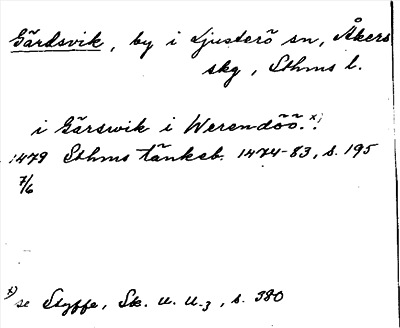 Gärdsvik, by i Ljusterö sn, Åkers
skg, Sthms l.
i Gärswik i Werendöö. x)
1479 Sthms tänkeb. 1474-83, s. 195
7/6
x) se Styffe, Sk. u. U.3, s. 380